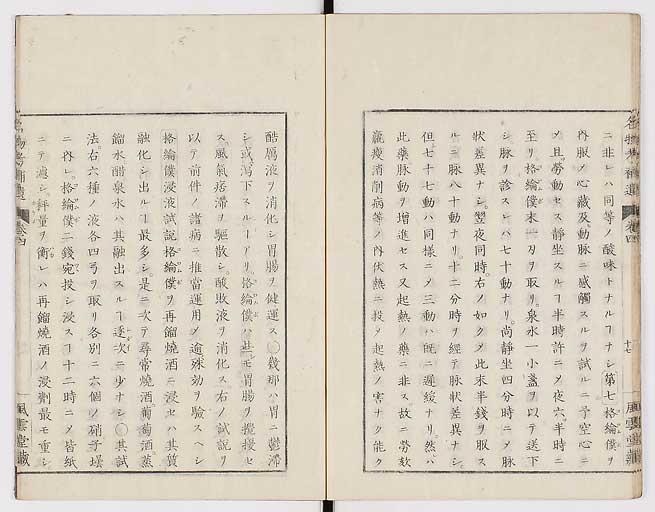 ニ非レハ同等ノ酸味トナル𪜈ナシ第七格綸僕ヲ
內服メ心藏及動脉ニ感觸スルヲ試ルニ予空心ニ
メ且勞動セス靜坐スル𪜈半時許ニメ夜六半時ニ
至リ格綸僕末一刄ヲ取リ泉水一小盞ヲ以テ送下
シ脉ヲ診スレハ七十動ナリ尚靜坐四分時ニメ脉
狀差異ナシ翌夜同時右ノ如クメ此末半錢ヲ服ス
ルニ脉八十動ナリ十二分時ヲ經テ脉狀差異ナシ
但七十七動ハ同樣ニメ三動ハ既ニ遲緩ナリ然ハ
此藥脉動ヲ增進セス又起熱ノ藥ニ非ス故ニ勞欬
羸瘦消削病等ノ內伏熱ニ投メ起熱ノ害ナク能ク
酷厲液ヲ消化シ胃腸ヲ健運ス〇幾那ハ胃ニ鬱滯
シ或瀉下スル𪜈アリ格綸僕ハ些モ胃腸ヲ攪擾セ
ス風氣痞滯ヲ驅散シ酸敗液ヲ消化ス右ノ試說ヲ
以テ前件ノ諸病ニ推當運用メ逾殊効ヲ驗スヘシ
格綸僕浸液試說格綸僕ヲ再餾燒酒ニ浸セハ其質
融化シ出ル𪜈最多シ是ニ次テ尋常燒酒葡萄酒蒸
餾水醋泉水ハ其融出スル𪜈逐次ニ少ナシ〇其試
法右六種ノ液各四弓ヲ取リ各別ニ六個ノ硝子壜
ニ內レ格綸僕二錢宛投シ浸ス𪜈十二時ニメ皆紙
ニテ濾シ秤量ヲ衡レハ再餾燒酒ノ浸劑最モ重シ
卷四
十七
風雲堂藏